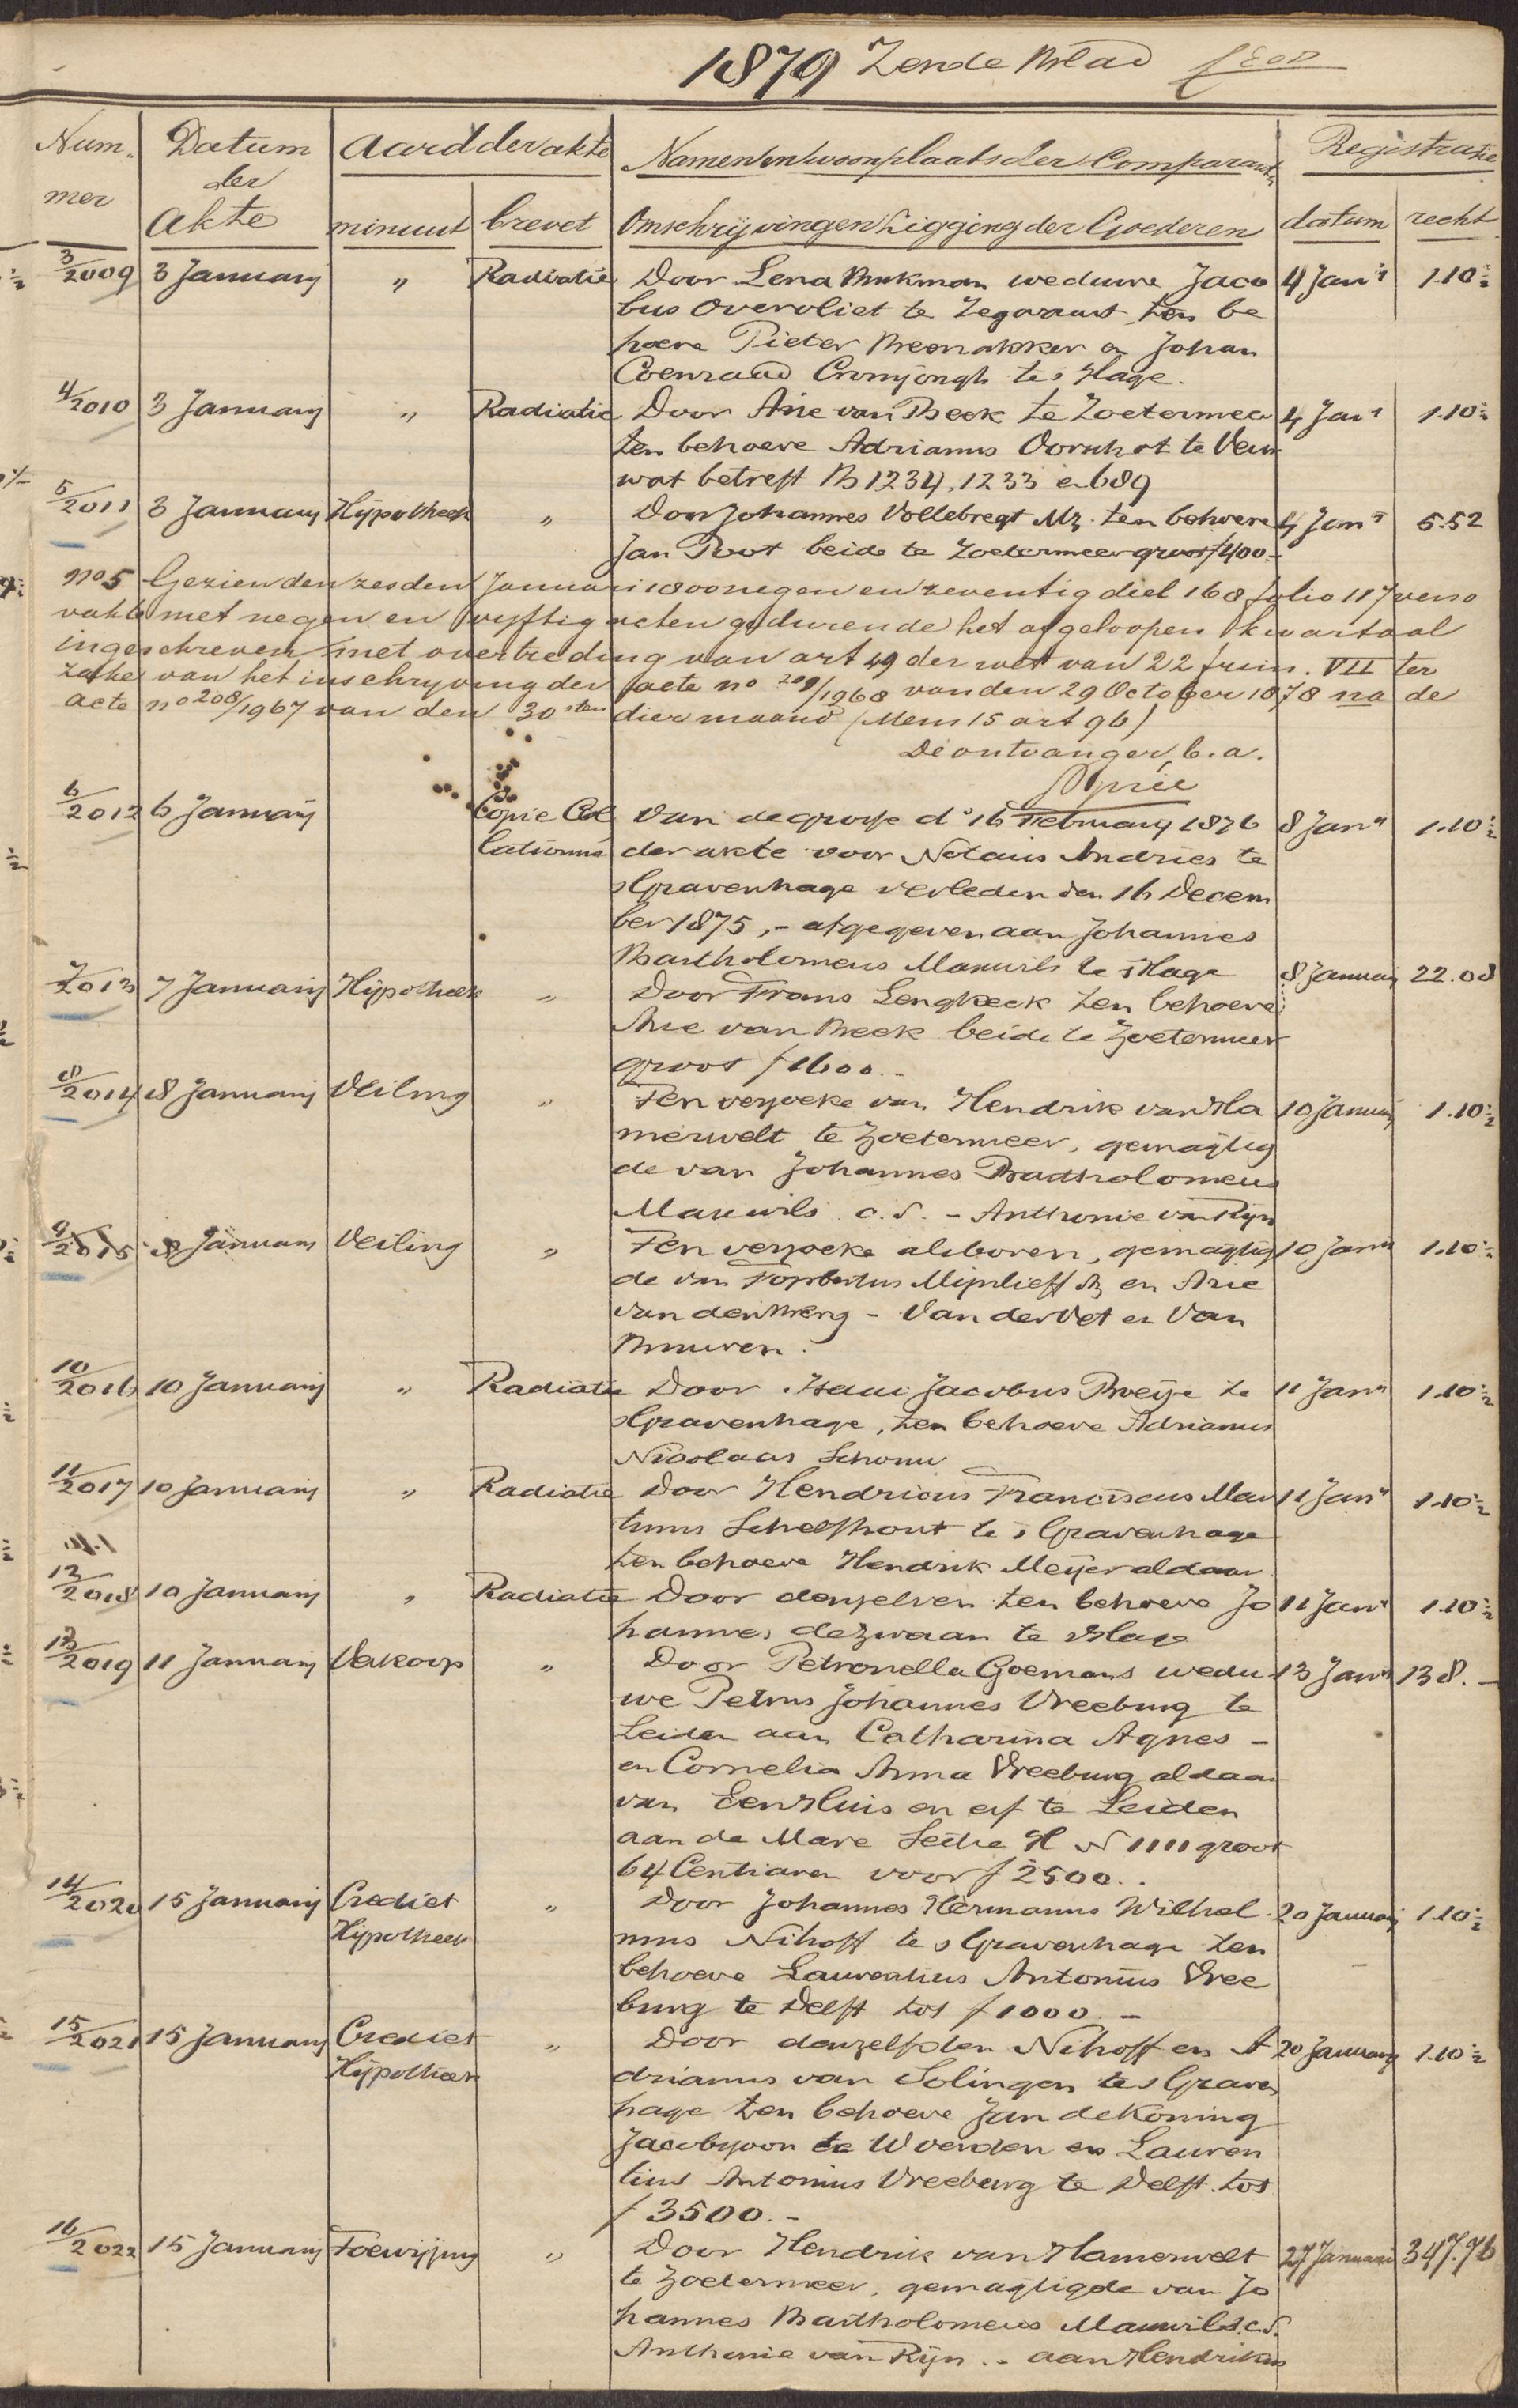 1879 Zende Blad
Num- Datum Aard der akte Namen en woonplaats der Comparanten Registratie
mer der
Akte minuut brevet Omschrijving en Ligging der Goederen datum recht
3/2009 3 January " Radiatie Door Lena Brukman weduwe Jaco 4 Jany 1.10½
bus Overvliet te Zegwaart ten be
hoeve Pieter Breemakker en Johan
Coenraad Cromjongh te s Hage.
4/2010 3 January " Radiatie Door Arie van Beek te Zoetermeer 4 Jany 1.10½
ten behoeve Adrianus Oornhot te Veur
wat betreft B 1234, 1233 en 689
5/2011 3 January Hypotheek " Door Johannes Vollebregt Mz. ten behoeve 4 Jany 5.52
Jan Poot beide te Zoetermeer groot f 400.-
No 5 Gezien den zesden Januari 1800 negen en zeventig deel 168 folio 117 verso
vak 6 met negen en vyftig acten gedurende het afgeloopen kwartaal
ingeschreven met overtreding van art 49 der wet van 22 frim. VII ter
zake van het inschryving der acte no 209/1968 van den 29 October 1878 na de
acte no 208/1967 van den 30sten dier maand (Mem 15 art 96)
De ontvanger, b.a.
6/2012 6 January Copie Col Van de grosse d° 16 February 1876 8 Jany 1.10½
lationné der akte voor Notaris Andries te
sGravenhage verleden den 16 Decem
ber 1875, - afgegeven aan Johannes
Bartholomeus Mauwils te sHage
7/2013 7 January Hypotheek " Door Frans Lengkeek ten behoeve 8 January 22.08
Arie van Beek beide te Zoetermeer
groot f 1600.-
8/2014 8 January Veiling " Ten verzoeke van Hendrik van Ha 10 January 1.10½
merwelt te Zoetermeer, gemagtig
de van Johannes Bartholomeus
Mauwils c.s. - Anthonie van Rijn
9/2015 8 January Veiling " Ten verzoeke alsboven, gemagtig 10 Jany 1.10½
de van Mijnlieff Az en Arie
van den Berg - Van der Vet en Van
Buuren.
10/2016 10 January " Radiatie Door Isaac Jacobus te 11 Jany 1.10½
sGravenhage, ten behoeve Adrianus
Nicolaas Schouw
11/2017 10 January " Radiatie Door Hendricus Franciscus Mar 11 Jany 1.10½
tinus Schelfhout te s Gravenhage
ten behoeve Hendrik Meijer aldaar
12/2018 10 January " Radiatie Door denzelven ten behoeve Jo 11 Jany 1.10½
hannes de Zwaan te sHage
13/2019 11 January Verkoop " Door Petronella Goemans wedu 13 Jany 138.-
we Petrus Johannes Vreeburg te
Leiden aan Catharina Agnes -
en Cornelia Anna Vreeburg aldaar
van Een Huis en erf te Leiden
aan de Mare Sectie H N 1111 groot
64 Centiaren voor f 2500..
14/2020 15 January Crediet " Door Johannes Hermanus Wilhel 20 January 1.10½
Hypotheek mus Nihoff te s Gravenhage ten
behoeve Laurentius Antonius Vree
burg te Delft tot f 1000.-
15/2021 15 January Crediet " Door denzelfden Nihoff en A 20 January 1.10½
Hypotheek drianus van Solingen te s Graven
hage ten behoeve Jan de Koning
Jacobszoon te Woerden en Lauren
tius Antonius Vreeburg te Delft tot
f 3500.-
16/2022 15 January Toewijzing " Door Hendrik van Hamerwelt 27 Januari 347.76
te Zoetermeer, gemagtigde van Jo
hannes Bartholomeus Mauwils c.s.
Anthonie van Rijn.- aan Hendrikus